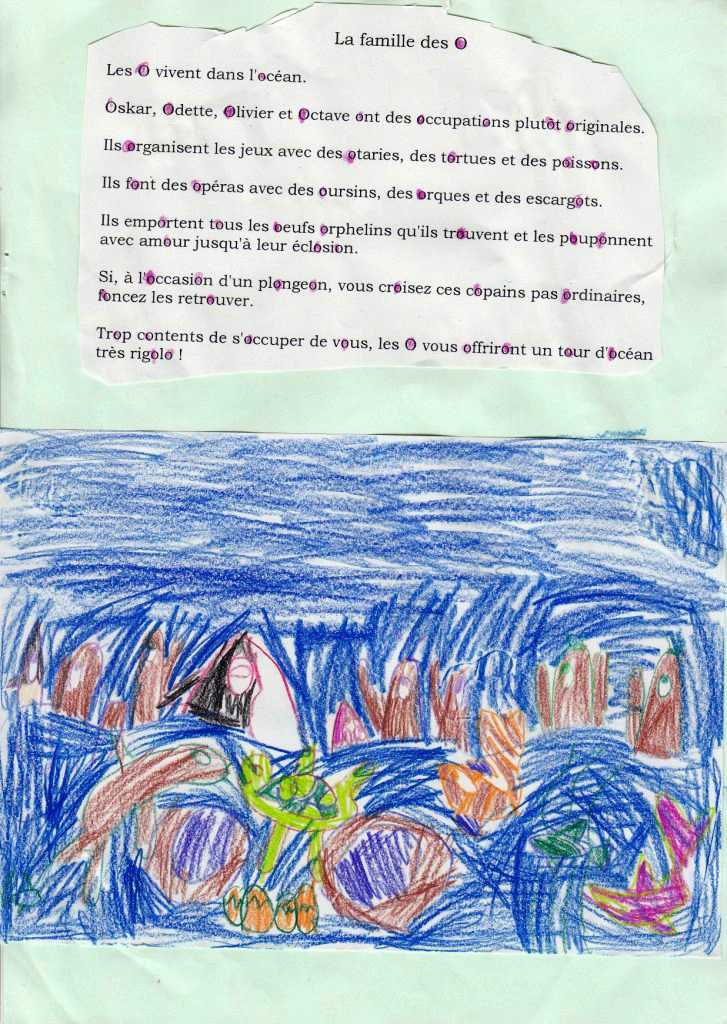 La famille des O
Les O vivent dans l'océan.
Oskar, Odette, Olivier et Octave ont des occupations plutôt originales.
Ils organisent les jeux avec des otaries, des tortues et des poissons.
Ils font des opéras avec des oursins, des orques et des escargots.
Ils emportent tous les oeufs orphelins qu'ils trouvent et les pouponnent
avec amour jusqu'à leur éclosion.
Si, à l'occasion d'un plongeon, vous croisez ces copains pas ordinaires,
foncez les retrouver.
Trop contents de s'occuper de vous, les O vous offriront un tour d'océan
très rigolo !